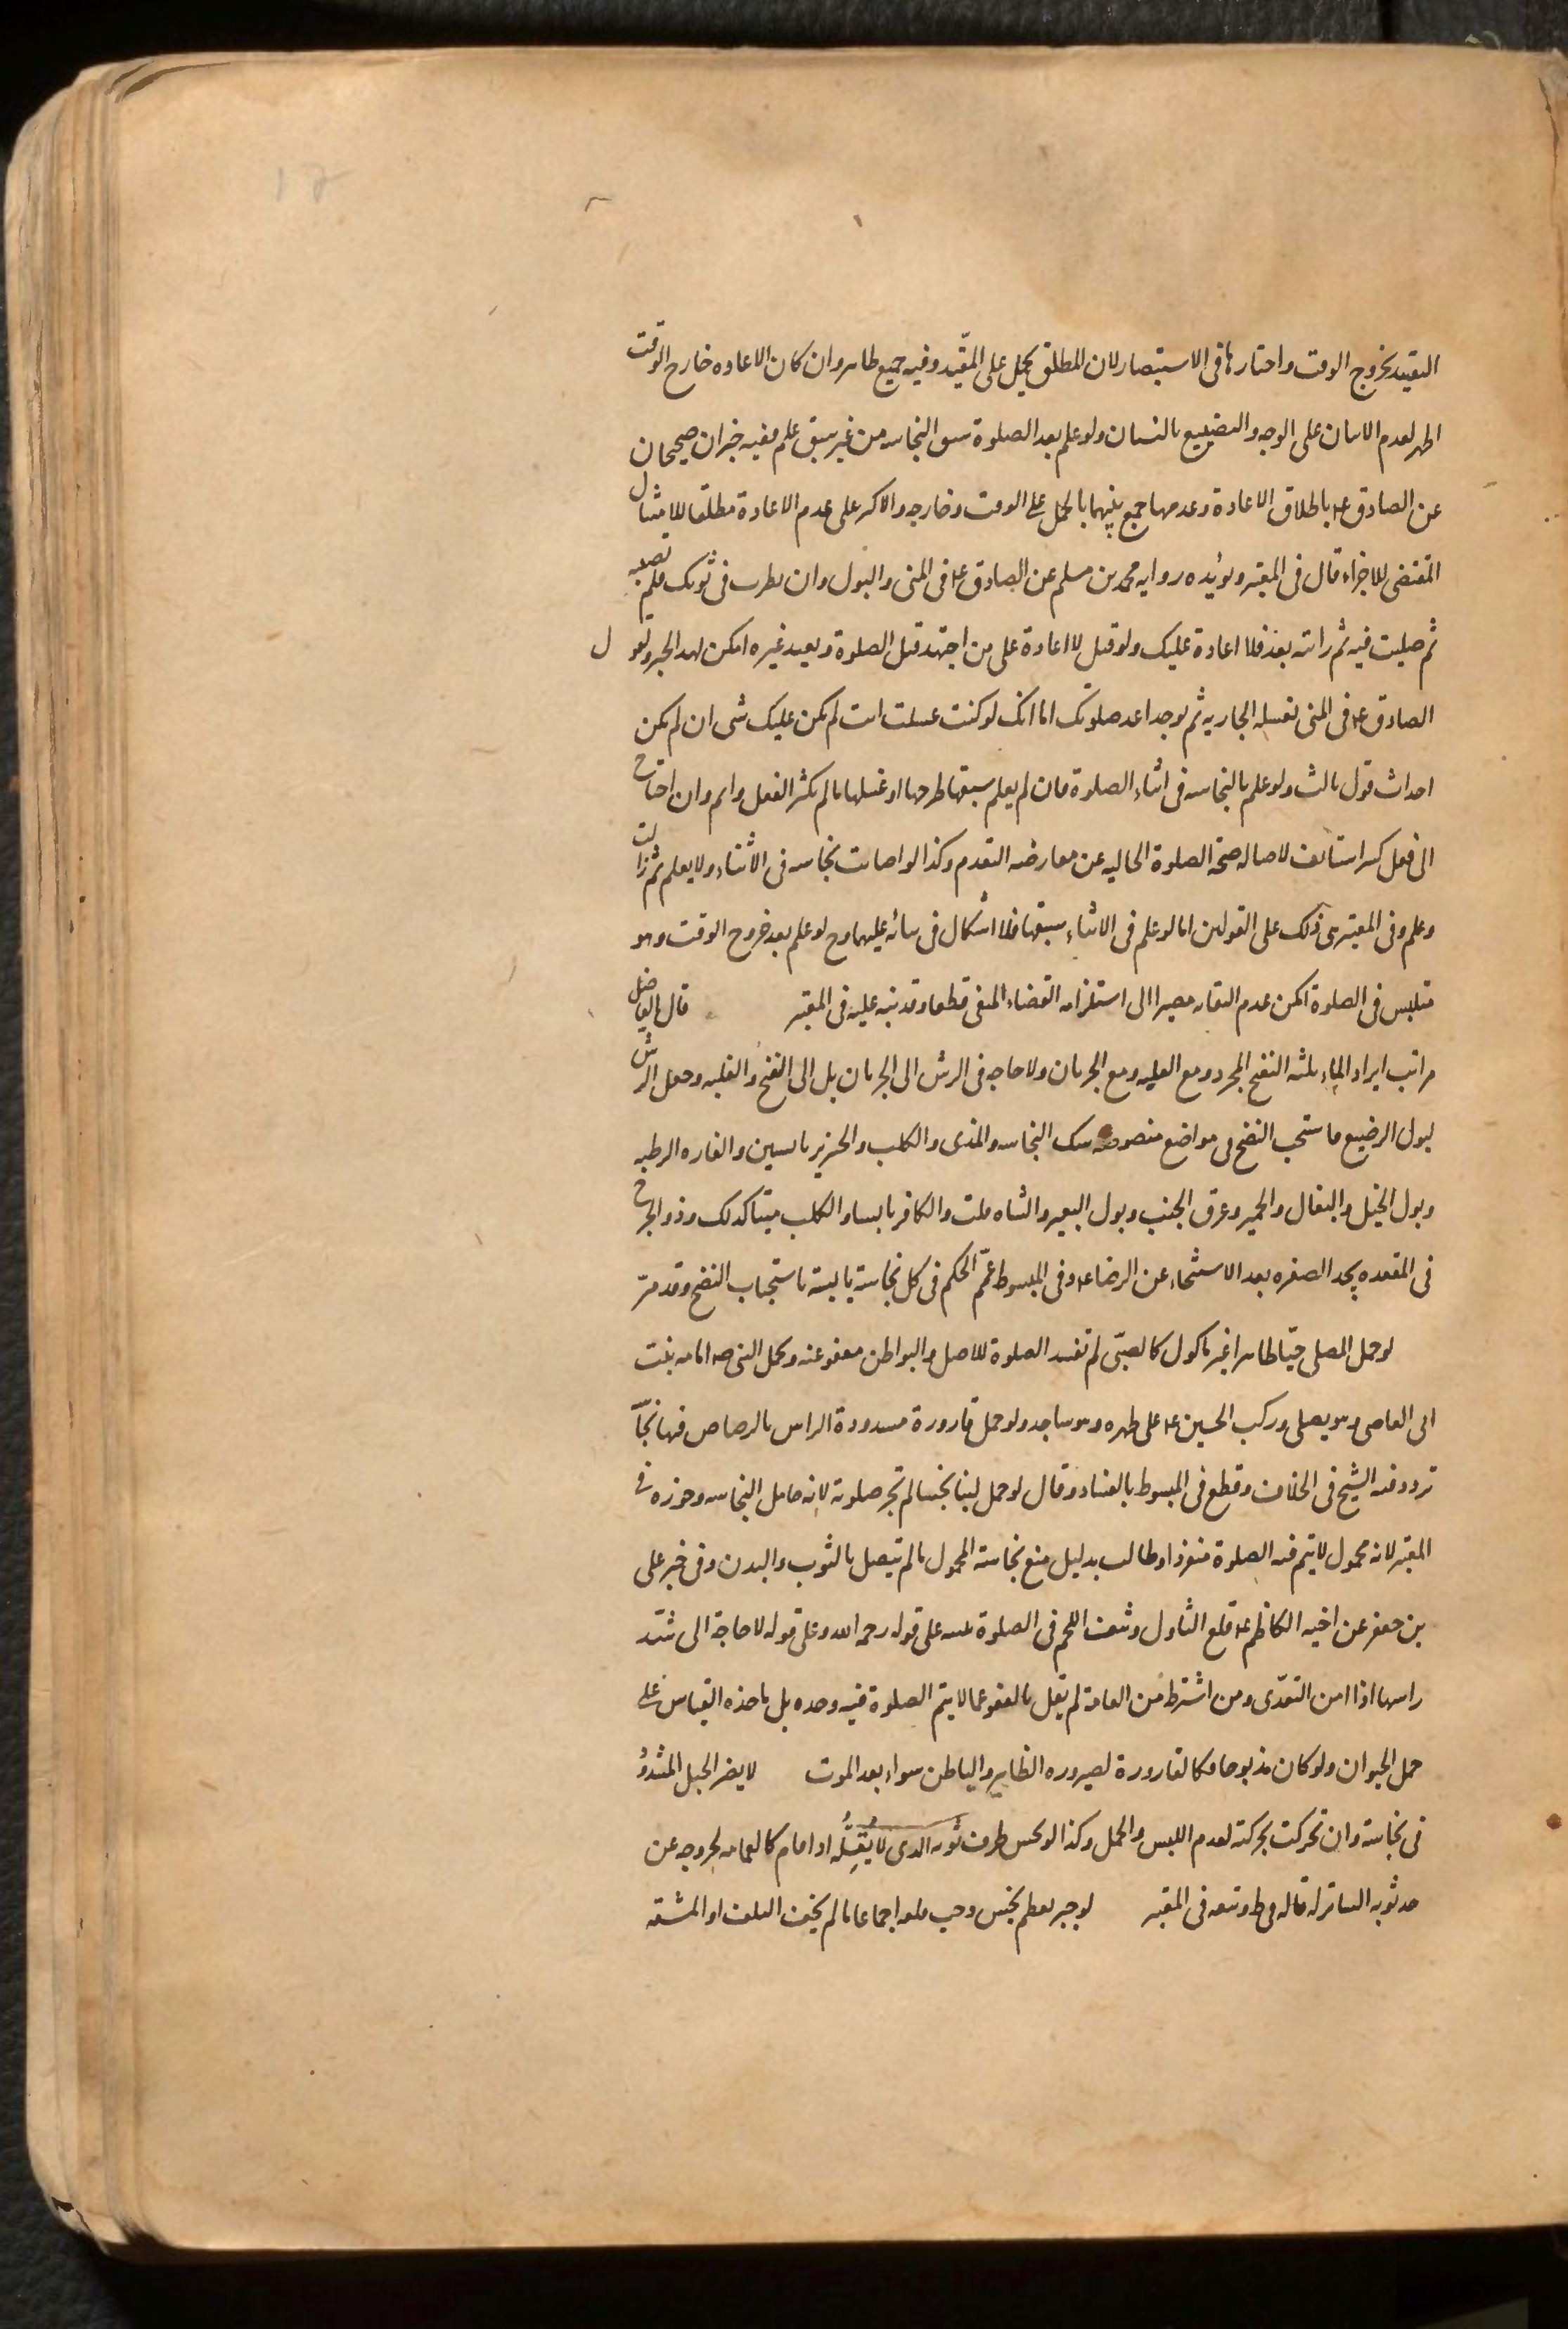 التقييد بخروج الوقت واختارها فى الاستبصار لان المطلق يحمل على المقيّد وفيه جمع ظاهر وان كان الاعاده خارج الوقت
اظهر لعدم الاتيان على الوجه والتضييع بالنسيان ولو علم بعد الصلوة سبق النجاسه من غير سبق علم ففيه خبران صحيحان
عن الصادق ع باطلاق الاعادة وعدمها جمع بينهما بالحمل على الوقت وخارجه والاكثر على عدم الاعادة مطلقا للامتثال
المقتضى للاجزاء قال فى المعتبر ويؤيده روايه محمد بن مسلم عن الصادق ع فى المنى والبول وان نظرت فى ثوبك فلم تصبه
ثم صليت فيه ثم رايته بعد فلا اعادة عليك ولو قيل لا اعادة على من اجتهد قبل الصلوة ويعيد غيره امكن لهذا الخبر ولقول
الصادق ع فى المنى تغسله الجاريه ثم يوجد اعد صلوتك اما انك لو كنت غسلت انت لم يكن عليك شى ان لم يكن
احداث قول ثالث ولو علم بالنجاسه فى اثناء الصلوة فان لم يعلم سبقها طرحها او غسلها ما لم يكثر الفعل واتم وان احتاج
الى فعل كثير استانف لاصاله صحة الصلوة الخاليه عن معارضه التقدم وكذا لو اصابته نجاسه فى الاثناء ولا يعلم ثم زالت
وعلم وفى المعتبر بنى ذلك على القولين اما لو علم فى الاثناء سبقها فلا اشكال فى بنائه عليهما وح لو علم بعد خروج الوقت وهو
متلبس فى الصلوة امكن عدم التفاته مصيرا الى استلزامه القضاء المنفى قطعا وقد نبه عليه فى المعتبر قال الفاضل
مراتب ايراد الماء ثلثه النضح المجرد ومع الغلبه ومع الجريان ولا حاجه فى الرش الى الجريان بل الى النضح والغلبه وجعل الرش
لبول الرضيع ما ستحب النضح فى مواضع منصوصه شك النجاسه والمذى والكلب والخنزير يابسين والفاره الرطبه
وبول الخيل والبغال والحمير وعرق الجنب وبول البعير والشاه قلت والكافر يابسا والكلب ميتا كذلك وذو الجرح
فى المقعده يجد الصفره بعد الاستنجاء عن الرضا ع وفى المبسوط عمّم الحكم فى كل نجاسة يابسة باستحباب النضح وقد مرّ
لو حمل المصلى حيّا طاهرا غير ماكول كالصبىّ لم تفسد الصلوة للاصل والبواطن معفو عنه وحمل النبى ص امامه بنت
ابى العاص وهو يصلى وركب الحسين ع على ظهره وهو ساجد ولو حمل قارورة مسدودة الراس بالرصاص فيها نجاسة
تردد فيه الشيخ فى الخلاف وقطع فى المبسوط بالفساد وقال لو حمل لبنا نجسا لم تجز صلوته لانه حامل النجاسه وجوزه فى
المعتبر لانه محمول لا يتم فيه الصلوة منفردا وطالب بدليل منع نجاسة المحمول ما لم يتصل بالثوب والبدن وفى خبر على
بن جعفر عن اخيه الكاظم ع قلع الثالول ونتف اللحم فى الصلوة على قوله رحمه الله وعلى قوله لا حاجة الى شدّ
راسها اذا امن التعدّى ومن اشترط من العامة لم يقل بالعفو عما لا يتم الصلوة فيه وحده بل ماخذه القياس على
حمل الحيوان ولو كان مذبوحا فكالقارورة لصيروره الظاهر والباطن سواء بعد الموت لا يضر الحبل المشدود
فى نجاسة وان تحركت بحركته لعدم اللبس والحمل وكذا لو نجس طرف ثوبه الذى لا يُقِلُّه اذا قام كالعمامه لخروجه عن
حد ثوبه الساتر له قاله فى ط وتبعه فى المعتبر لو جبر بعظم نجس وجب قلعه اجماعا ما لم يخف التلف او المشقه